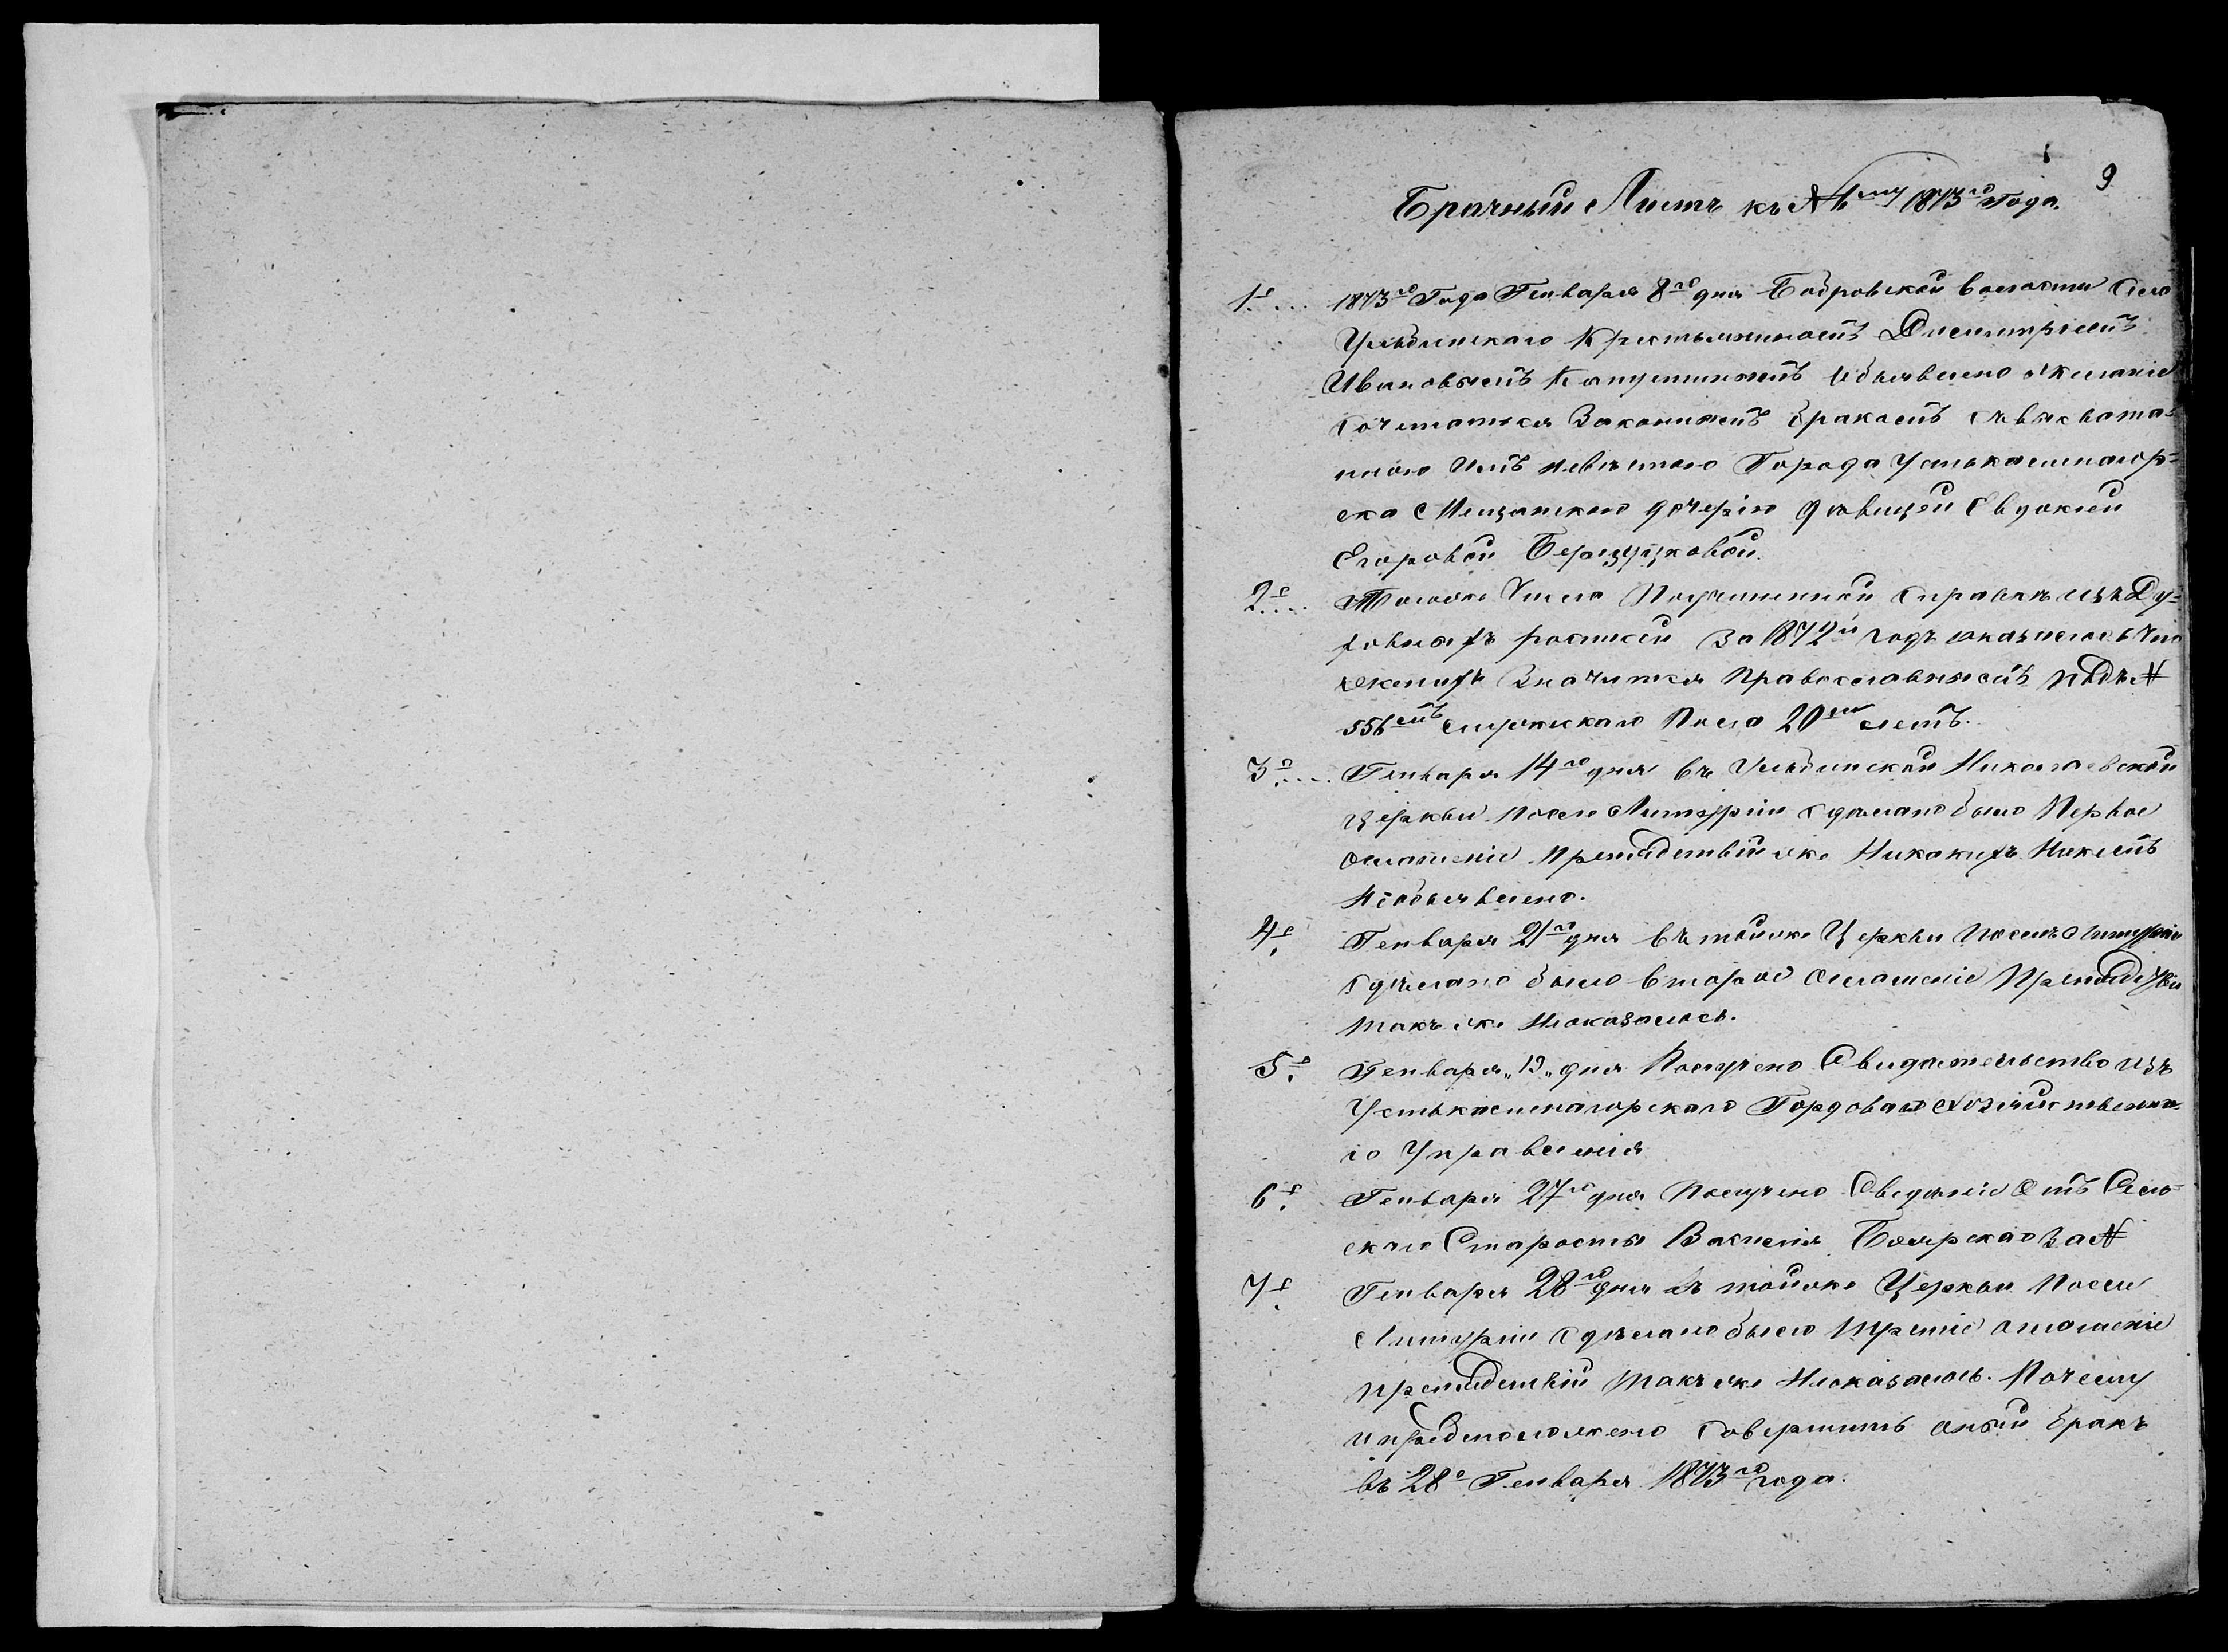 9
Брачный Листъ къ №1му 1873го Года.
1е... 1873го Года Генваря 8го дня Бобровской волости Села
Ульбинскаго Крестьяниномъ Димитріемъ
Ивановымъ Капустинымъ Объявлено желаніе
Сочетатися Законнымъ бракомъ съ высвата-
нною имъ невѣстою Города Устькаменогор-
ска Мещанскою дочерію дѣвицей Евдокіей
Егоровой
2е.... Тогоже Числа Полученной Справкѣ изъ Ду-
ховныхъ росписей За 1872й годъ оказалось что
женихъ Значится Православнымъ подъ №
556мъ мужескаго Пола 20ти летъ.
3е.... Генваря 14го дня въ Ульбинской Николаевской
Церкви после Литургіи сделано было Первое
оглашеніе препядствій же Никакихъ Никемъ
Необъявлено.
4е. Генваря 21го дня въ тойже Церкви послѣ Литургіи
сдѣлано было второе оглашеніе Препядствій
такъ же Неоказалось.
5е. Генваря „19„ дня Получено Свидетельство изъ
Устькаменогорскаго Гордоваго хозяйственна-
го Управленія
6е. Генваря 27го дня Получено Сведеніе Отъ Сель-
скаго Старосты Василія Боярскаго За №
7е. Генваря 28го дня въ тойже Церкви После
Литургіи сдѣлано было третіе оглашеніе
препядствій такъ же Неоказалось. Почему
и предположено Совершить оный бракъ
въ 28е Генваря 1873го года.